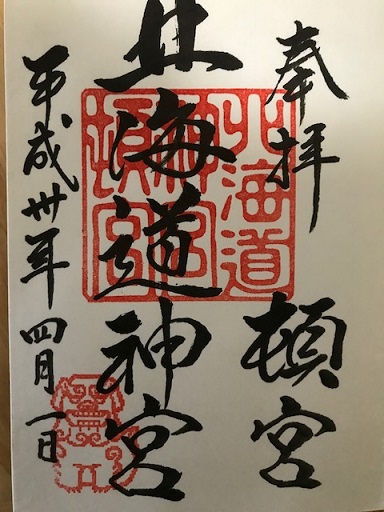 奉拝
頓宮
北海道神宮
平成卅年四月一日
北海道
神宮
頓宮